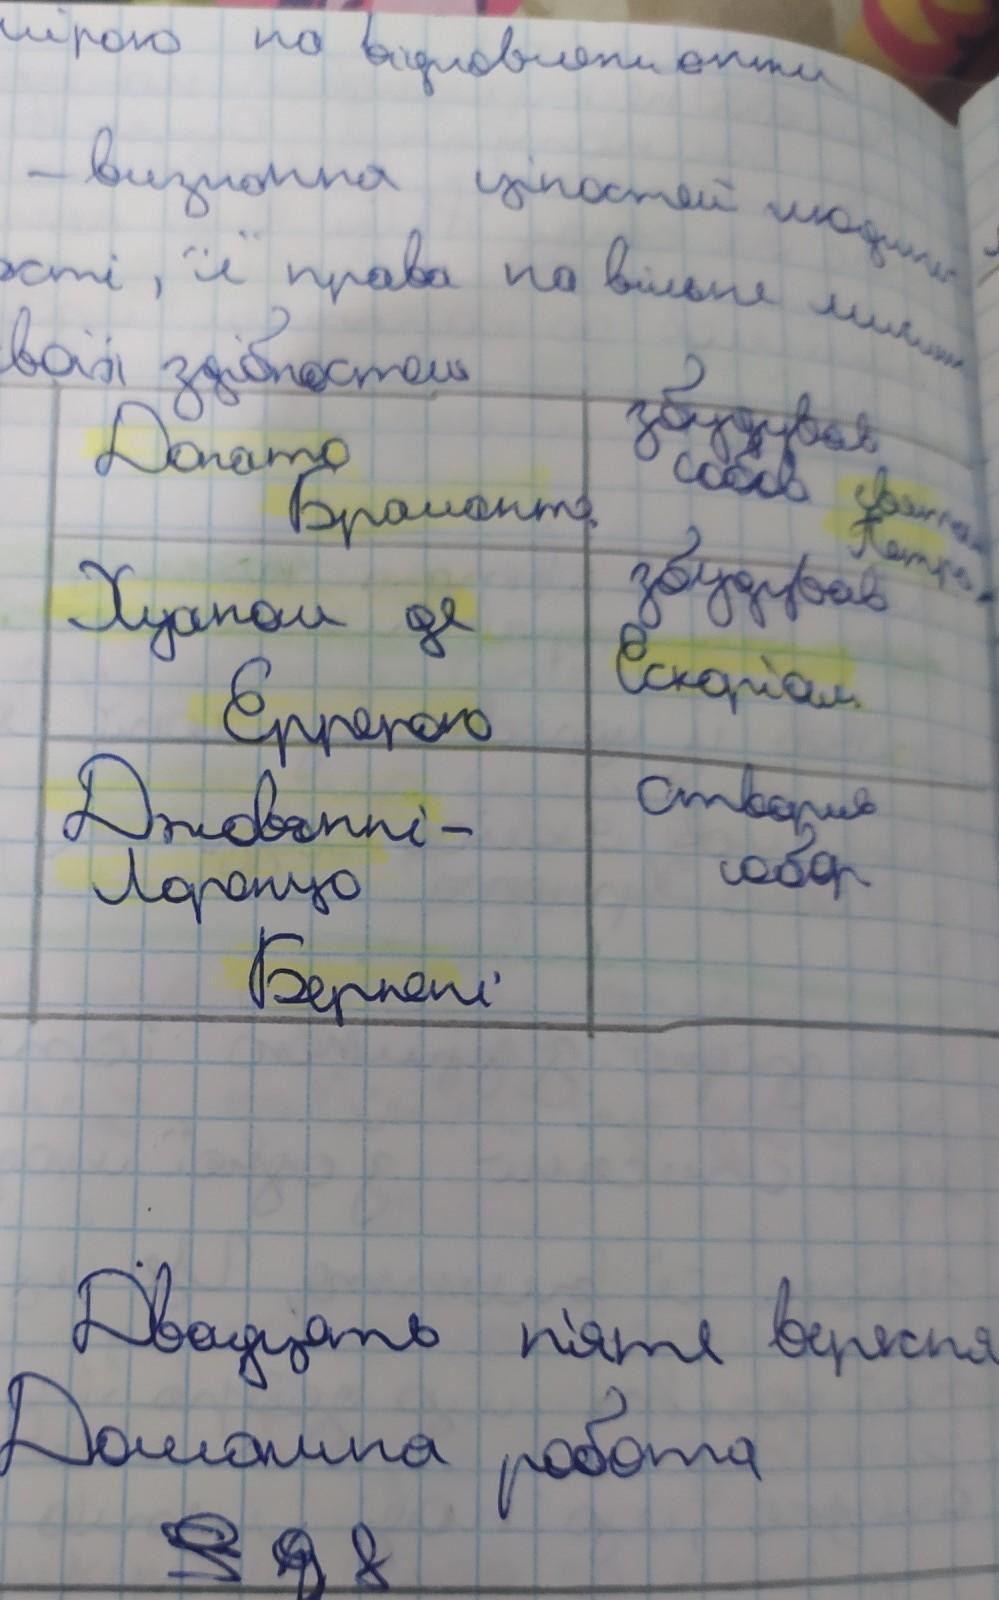 мірою по відмовляти
– визнання цінностей людини
ості, її права на вільне
своїх здібностей
Донато
Браманте
збудував
собор святого
Петра.
Хуаном де
Еррерою
збудував
Ескоріал
Джованні-
Лоренцо
Берніні
створив
собор
Двадцять п'яте вересня
Домашня робота
§